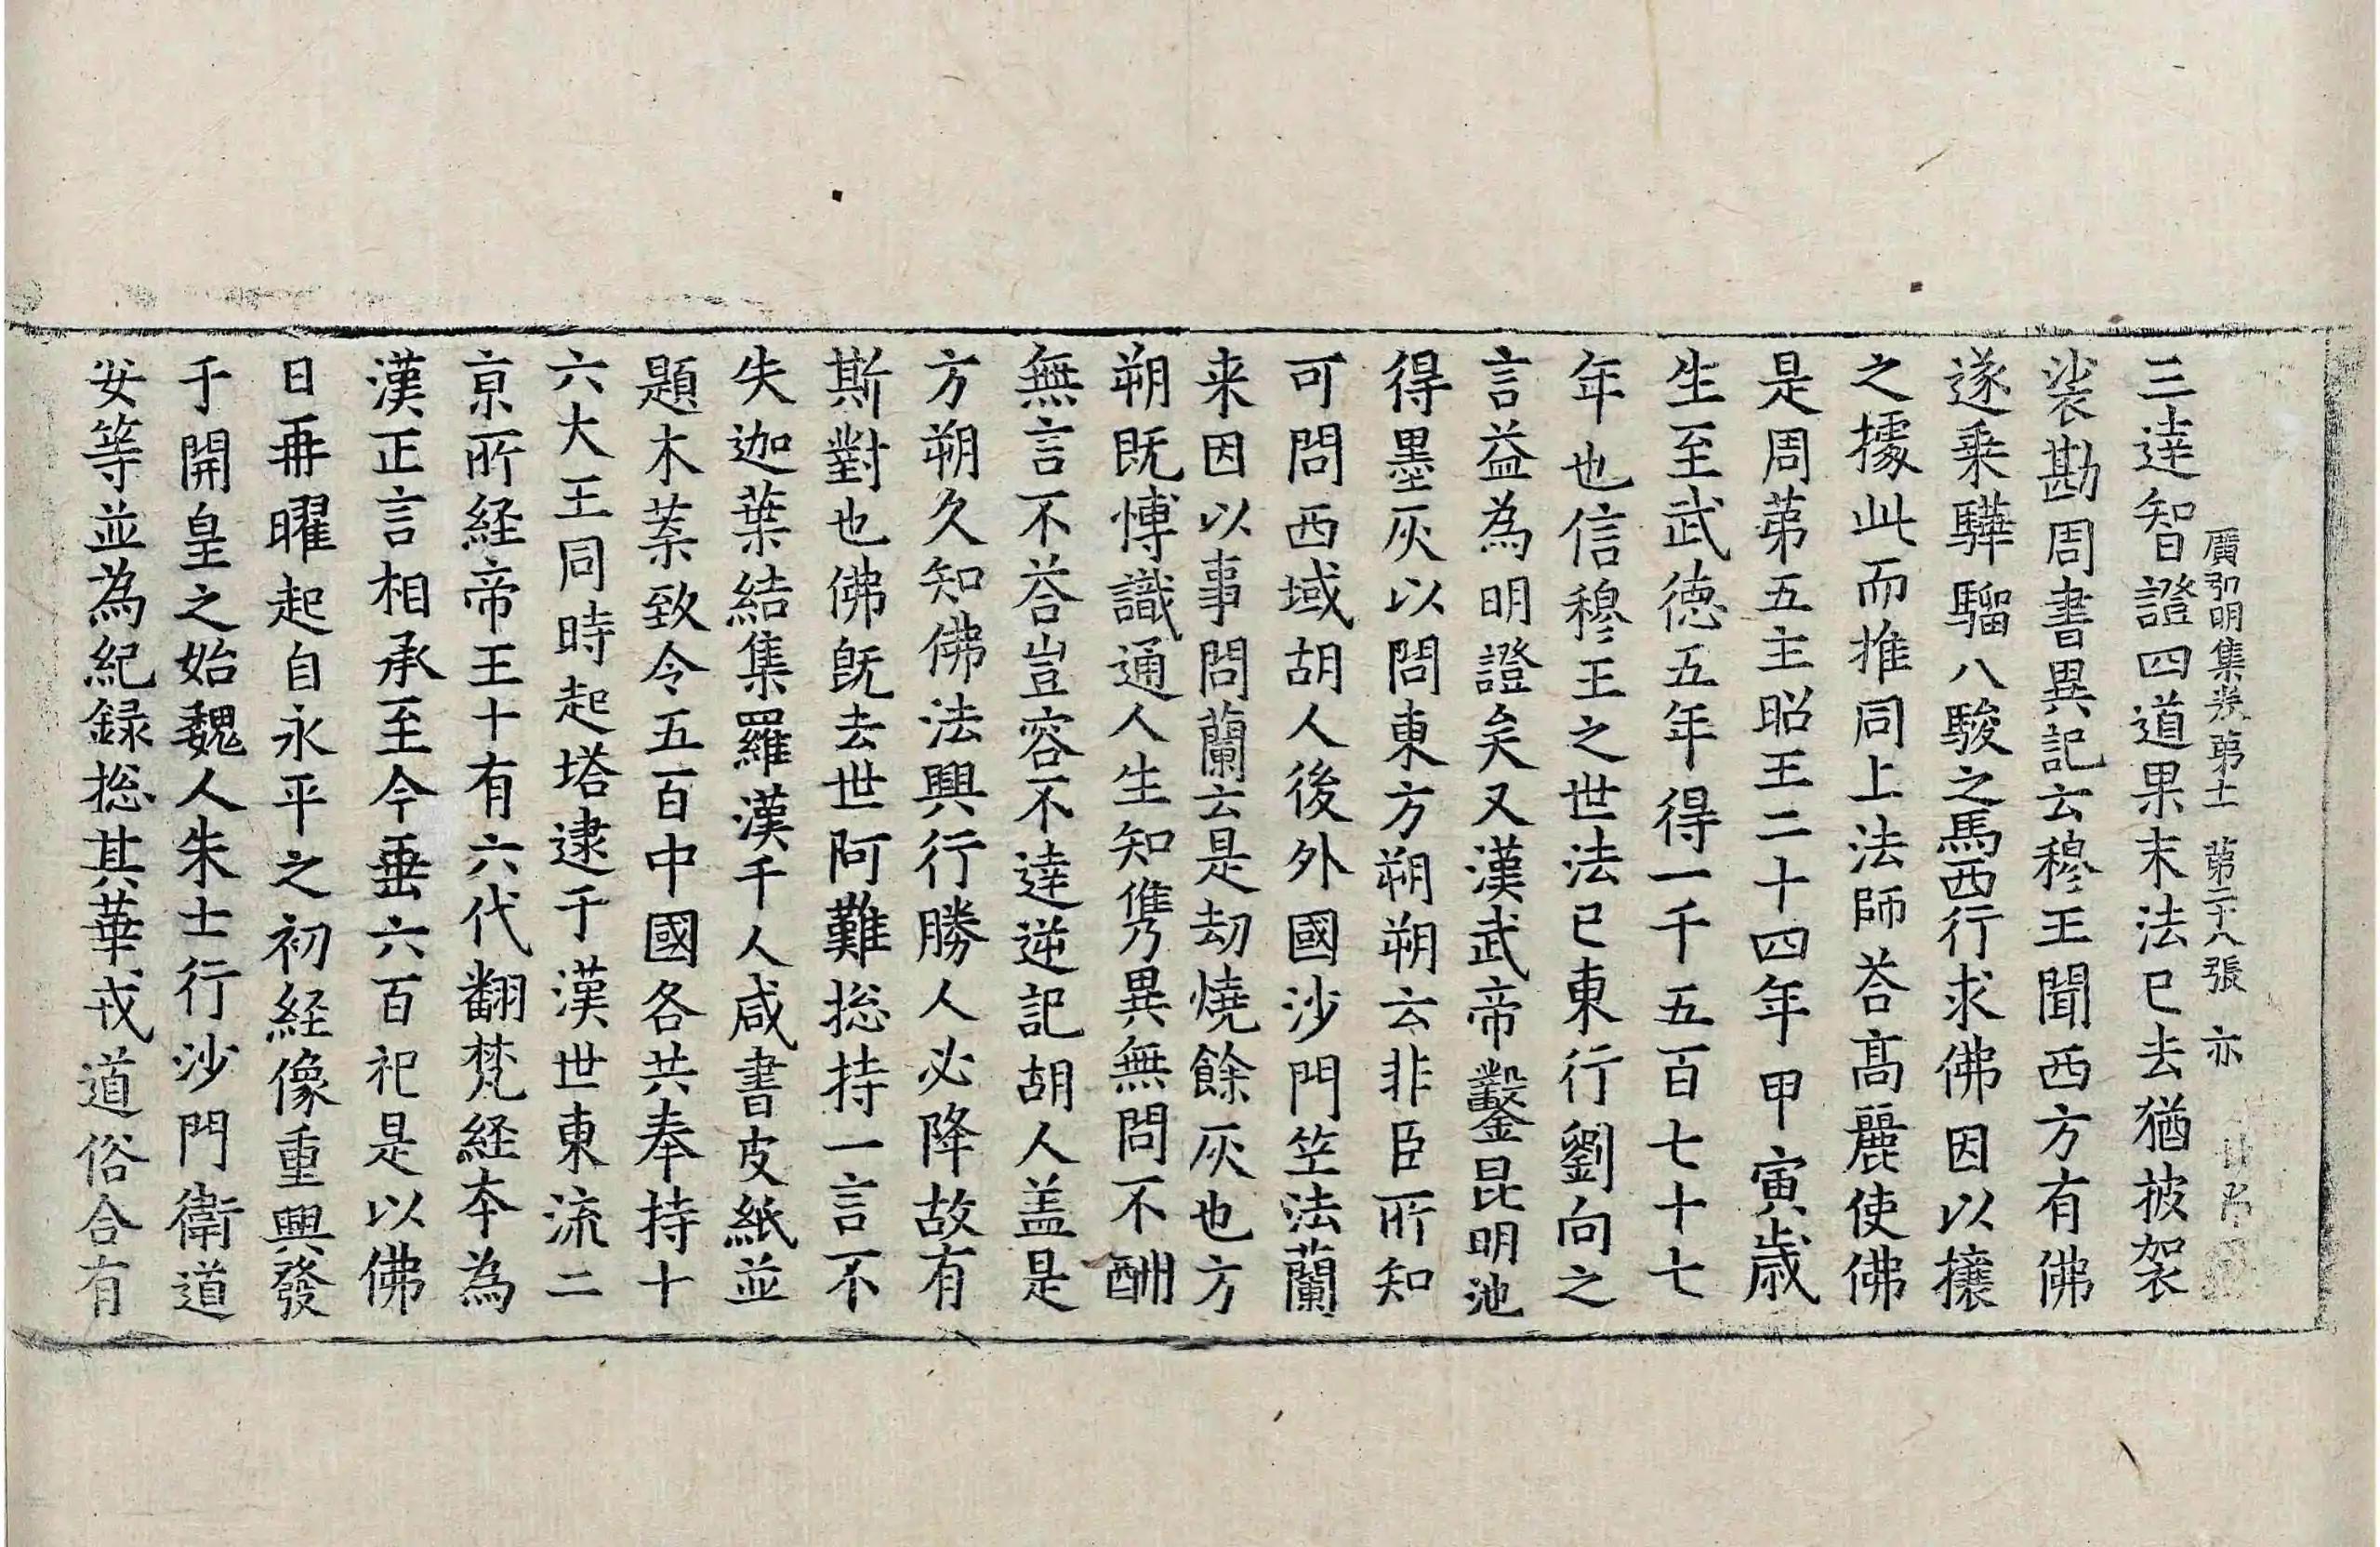 三達智證四道果末法已去猶披袈
廣弘明集卷第十一 第二十八張 亦
裟勘周書異記云穆王聞西方有佛
遂乗驊騮八駿之馬西行求佛因以攘
之據此而推同上法師荅髙麗使佛
是周第五主昭王二十四年甲寅歳
生至武德五年得一千五百七十七
年也信穆王之世法已東行劉向之
言益為明證矣又漢武帝鑿昆明池
得墨灰以問東方朔朔云非臣所知
可問西域胡人後外國沙門竺法蘭
来因以事問蘭云是劫燒餘灰也方
朔既愽識通人生知儁異無問不酬
無言不荅豈容不達逆記胡人盖是
方朔久知佛法興行勝人必降故有
斯對也佛既去世阿難揔持一言不
失迦葉結集羅漢千人咸書皮紙並
題木葉致令五百中國各共奉持十
六大王同時起塔逮于漢世東流二
京所経帝王十有六代翻梵経本為
漢正言相承至今垂六百祀是以佛
日再曜起自永平之初経像重興發
于開皇之始魏人朱士行沙門衛道
安等並為紀録揔其華戎道俗合有